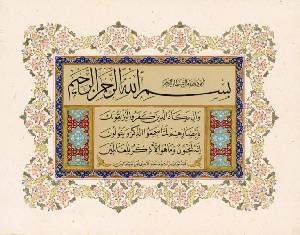 بِسْمِ اللهِ الرَّحْمٰنِ الرَّحِيمِ
وَإِن يَكَادُ الَّذِينَ كَفَرُوا لَيُزْلِقُونَكَ
بِأَبْصَارِهِمْ لَمَّا سَمِعُوا الذِّكْرَ وَيَقُولُونَ
إِنَّهُ لَمَجْنُونٌ وَمَا هُوَ إِلَّا ذِكْرٌ لِّلْعَالَمِينَ